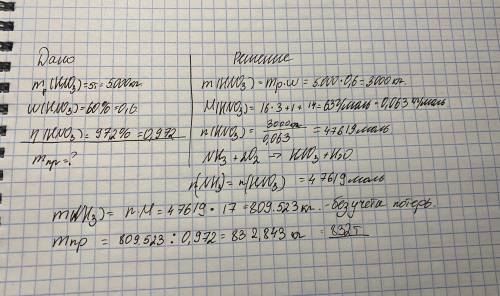 Дано
mp(HNO3)=5т=5.000кг
W(HNO3)=60%=0,6
η(HNO3)=97,2%=0,972
mпр=?
Решение
m(HNO3)=mp.w=5.000.0,6=3000кг
M(HNO3)=16.3+1+14=63г/моль=0,063 кг/моль
n(HNO3)=3000кг/0,063=47619моль
NH3+2O2→HNO3+H2O
n(NH3)=n(HNO3)=47619моль
m(NH3)= n.M=47619.17=809.523кг.-без учета потерь.
mпр = 809.523:0,972=832,843 кг =832т